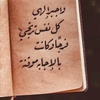 واجبر إلهي
كل نفس ترتجي
فرجًا وكانت
بالإجابة موقنة